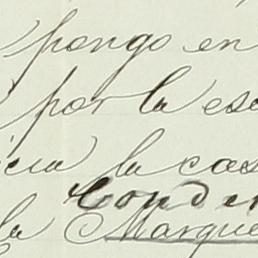 pongo en
por la es
la cas
Conde
la Marque